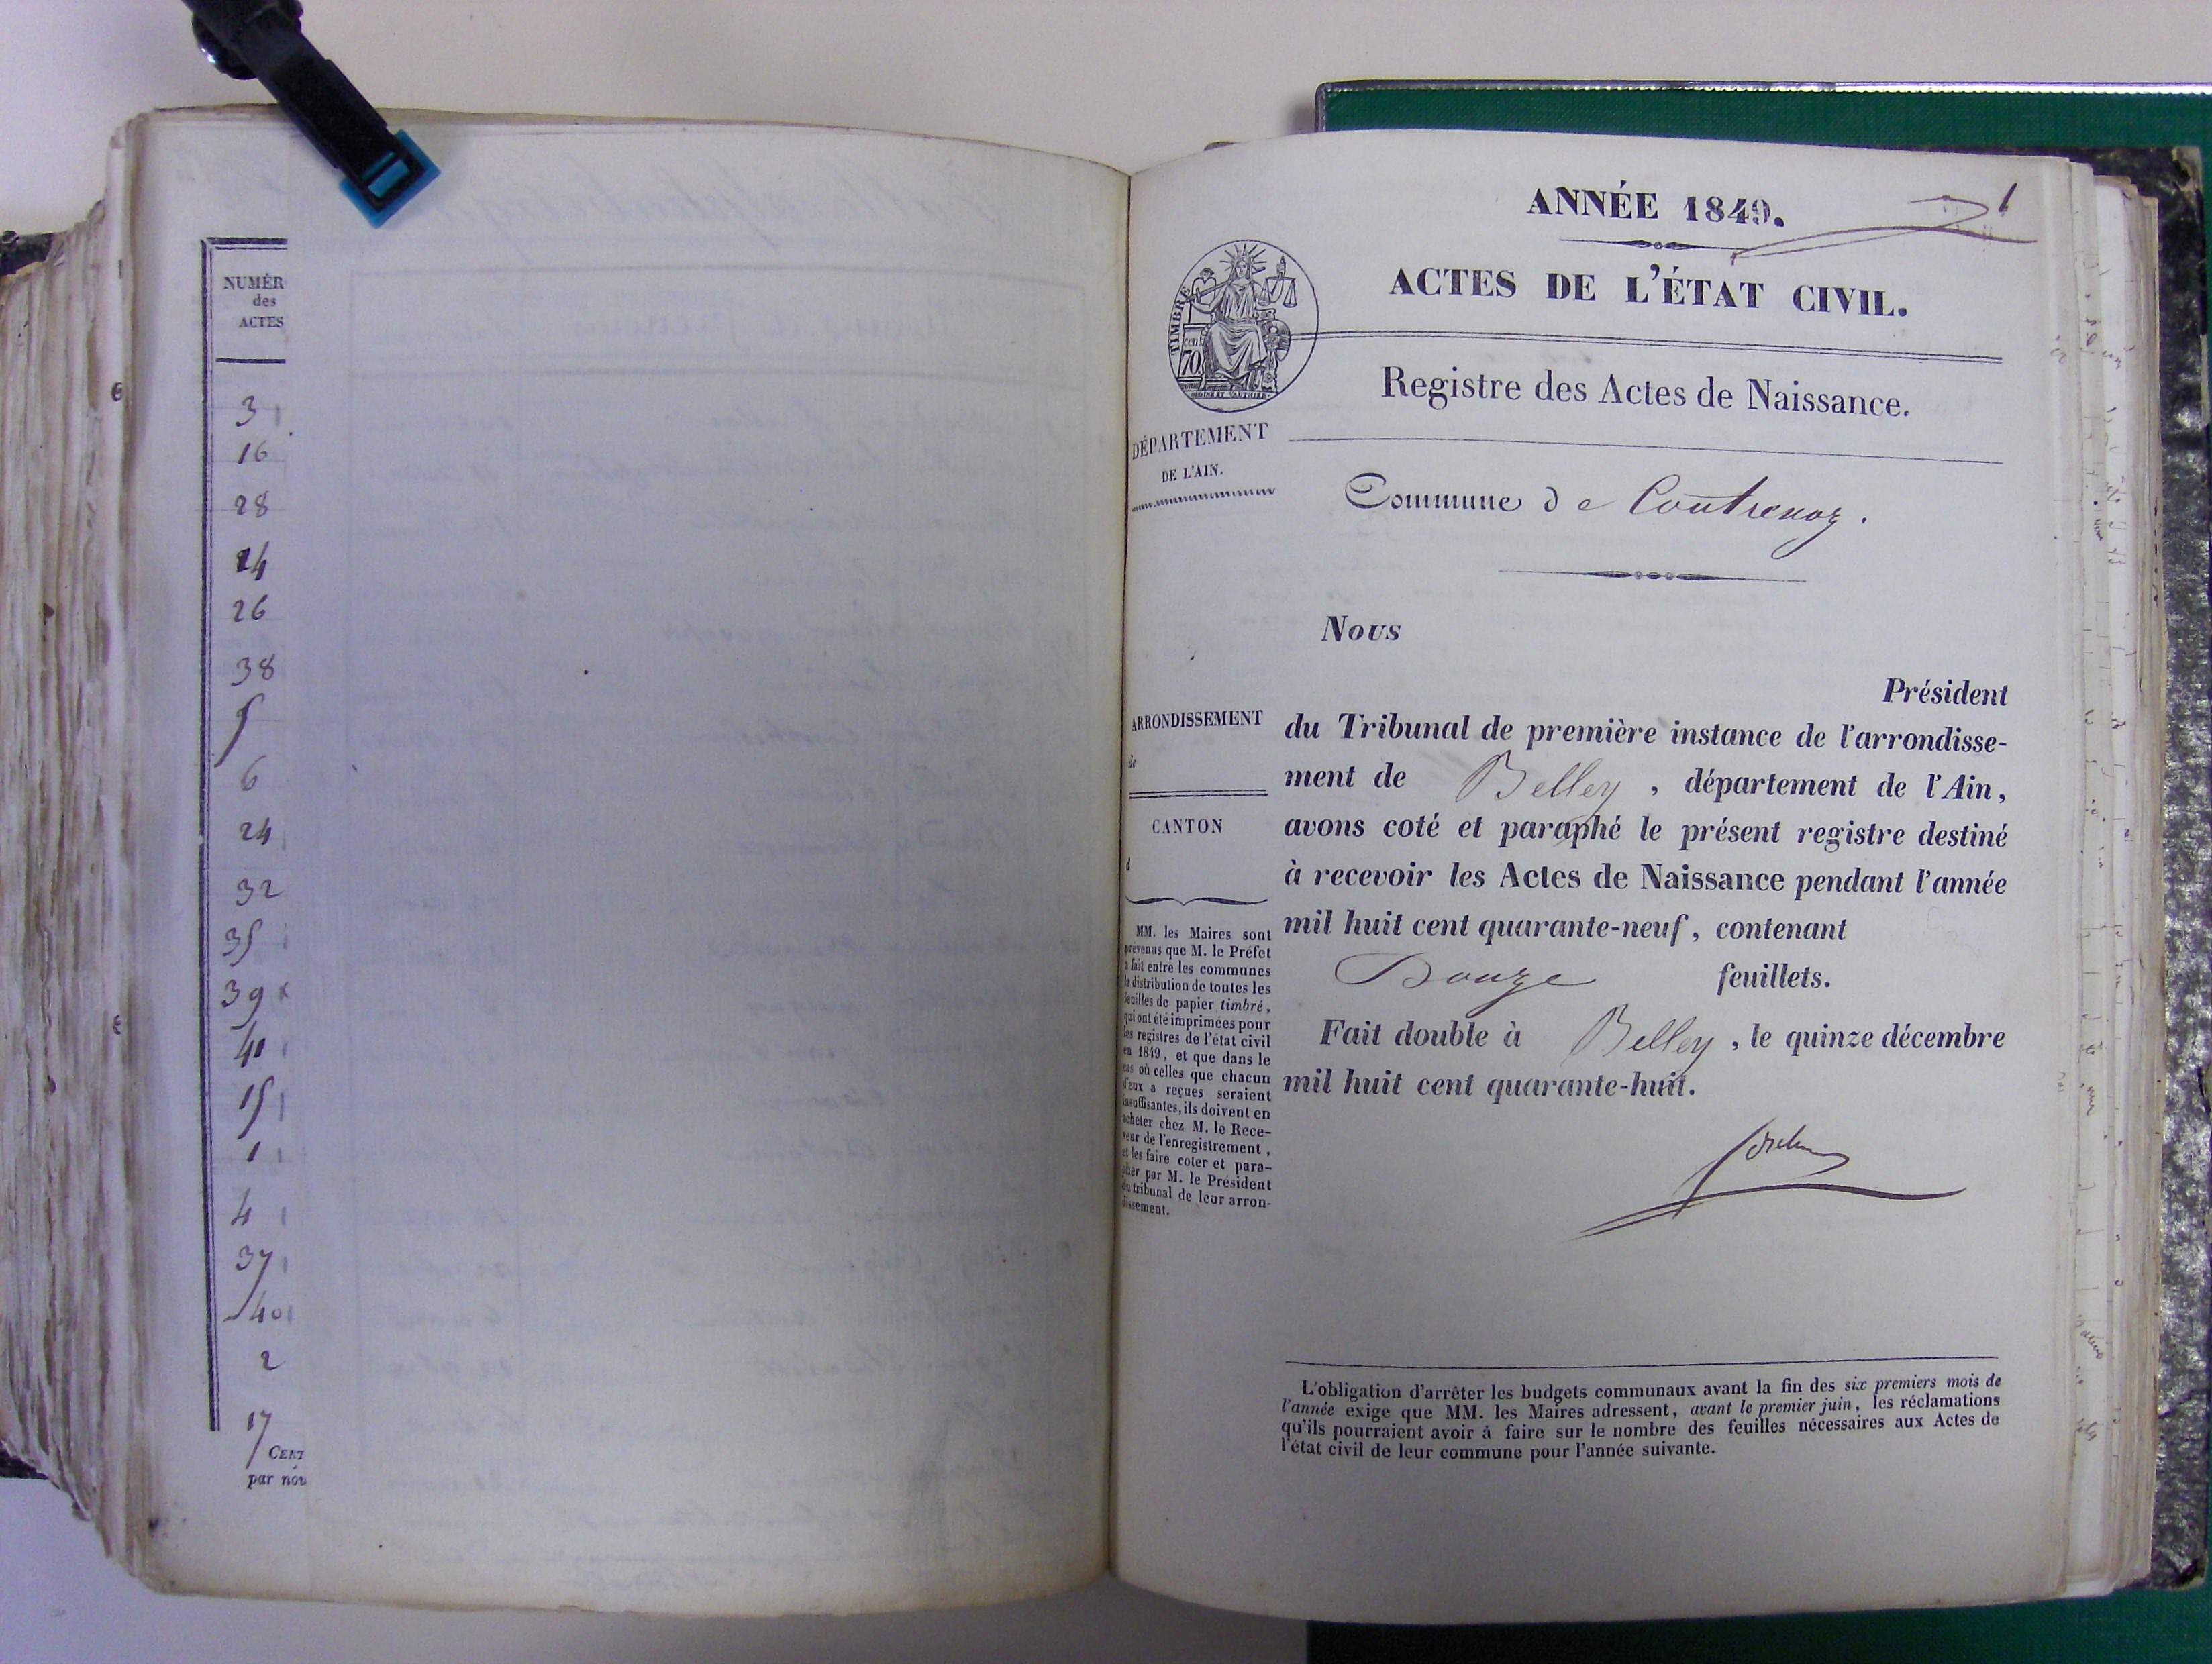 NUMÉR
des
ACTES
3
16
28
14
26
38
5
6
24
32
35
39
40
15
1
4
37
40
2
17
CERT
par nou
ANNÉE 1849.
1
ACTES DE L'ÉTAT CIVIL.
TIMBRE
cen.
70.
Registre des Actes de Naissance.
DÉPARTEMENT
DE L'AIN.
Commune de Contrevoz.
Nous
Président
ARRONDISSEMENT
de
CANTON
d
du Tribunal de première instance de l'arrondisse-
ment de Belley, département de l'Ain,
avons coté et paraphé le présent registre destiné
à recevoir les Actes de Naissance pendant l'année
mil huit cent quarante-neuf, contenant
Douze feuillets.
Fait double à Belley, le quinze décembre
mil huit cent quarante-huit.
MM. les Maires sont
prévenus que M. le Préfet
a fait entre les communes
la distribution de toutes les
feuilles de papier timbré,
qui ont été imprimées pour
les registres de l'état civil
en 1849, et que dans le
cas où celles que chacun
d'eux a reçues seraient
insuffisantes, ils doivent en
acheter chez M. le Rece-
veur de l'enregistrement,
et les faire coter et para-
pher par M. le Président
du tribunal de leur arron-
dissement.
L'obligation d'arrêter les budgets communaux avant la fin des six premiers mois de
l'année exige que MM. les Maires adressent, avant le premier juin, les réclamations
qu'ils pourraient avoir à faire sur le nombre des feuilles nécessaires aux Actes de
l'état civil de leur commune pour l'année suivante.